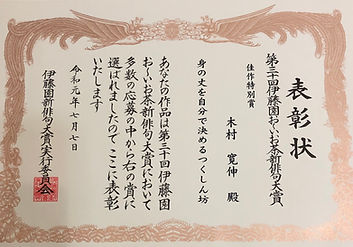 表彰状
第三十回伊藤園お〜いお茶新俳句大賞
佳作特別賞
木村 寛伸 殿
身の丈を自分で決めるつくしん坊
あなたの作品は第三十回伊藤園
お〜いお茶新俳句大賞において
多数の応募の中から右の賞に
選ばれましたのでここに表彰
いたします
令和元年七月七日
伊藤園新俳句大賞実行委員会